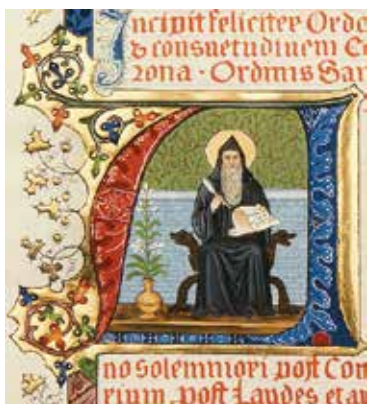 Incipit feliciter Ordo
& consuetudinem Co
rona · Ordinis San
no solemniori post Com
rium post Laudes et au